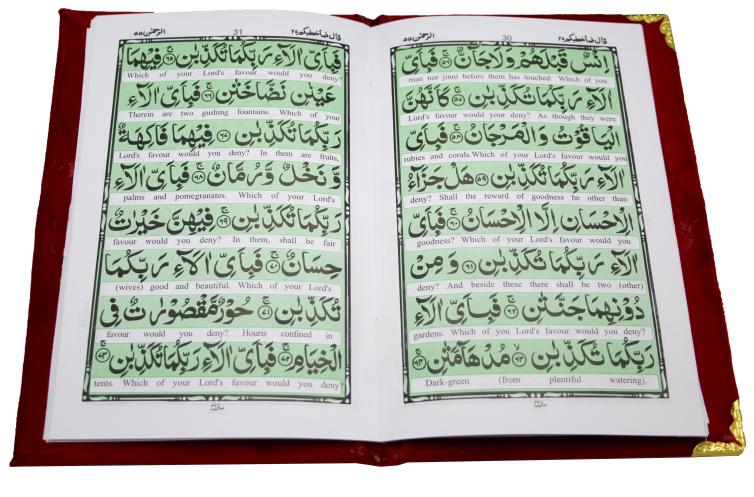 قال فما خطبكم ٢٧ 30 الرحمٰن ٥٥
اِنْسٌ قَبْلَهُمْ وَلَا جَآنٌّ ۚ﴿٥٦﴾ فَبِاَیِّ
man nor jinni before them has touched. Which of you
اٰلَآءِ رَبِّكُمَا تُكَذِّبٰنِ ۚ﴿٥٧﴾ كَاَنَّهُنَّ
Lord's favour would your deny? As though they were
الْیَاقُوْتُ وَالْمَرْجَانُ ۚ﴿٥٨﴾ فَبِاَیِّ
rubies and corals.Which of your Lord's favour would you
اٰلَآءِ رَبِّكُمَا تُكَذِّبٰنِ ﴿٥٩﴾ هَلْ جَزَآءُ
deny? Shall the reward of goodness be other than
الْاِحْسَانِ اِلَّا الْاِحْسَانُ ۚ﴿٦٠﴾ فَبِاَیِّ
goodness? Which of your Lord's favour would you
اٰلَآءِ رَبِّكُمَا تُكَذِّبٰنِ ﴿٦١﴾ وَ مِنْ
deny? And beside these there shall be two (other)
دُوْنِهِمَا جَنَّتٰنِ ۚ﴿٦٢﴾ فَبِاَیِّ اٰلَآءِ
gardens. Which of you Lord's favour would you deny?
رَبِّكُمَا تُكَذِّبٰنِ ﴿٦٣﴾ مُدْهَآمَّتٰنِ ۚ﴿٦٤﴾
Dark-green (from plentiful watering).
قال فما خطبكم ٢٧ 31 الرحمٰن ٥٥
فَبِاَیِّ اٰلَآءِ رَبِّكُمَا تُكَذِّبٰنِ ۚ﴿٦٥﴾ فِیْهِمَا
Which of your Lord's favour would you deny?
عَیْنٰنِ نَضَّاخَتٰنِ ۚ﴿٦٦﴾ فَبِاَیِّ اٰلَآءِ
Therein are two gushing fountains. Which of your
رَبِّكُمَا تُكَذِّبٰنِ ﴿٦٧﴾ فِیْهِمَا فَاكِهَةٌ
Lord's favour would you deny? In them are fruits,
وَّ نَخْلٌ وَّ رُمَّانٌ ۚ﴿٦٨﴾ فَبِاَیِّ اٰلَآءِ
palms and pomegranates. Which of your Lord's
رَبِّكُمَا تُكَذِّبٰنِ ۚ﴿٦٩﴾ فِیْهِنَّ خَیْرٰتٌ
favour would you deny? In them, shall be fair
حِسَانٌ ۚ﴿٧٠﴾ فَبِاَیِّ اٰلَآءِ رَبِّكُمَا
(wives) good and beautiful. Which of your Lord's
تُكَذِّبٰنِ ۚ﴿٧١﴾ حُوْرٌ مَّقْصُوْرٰتٌ فِی
favour would you deny? Houris confined in
الْخِیَامِ ۚ﴿٧٢﴾ فَبِاَیِّ اٰلَآءِ رَبِّكُمَا تُكَذِّبٰنِ ۚ﴿٧٣﴾
tents. Which of your Lord's favour would you deny?